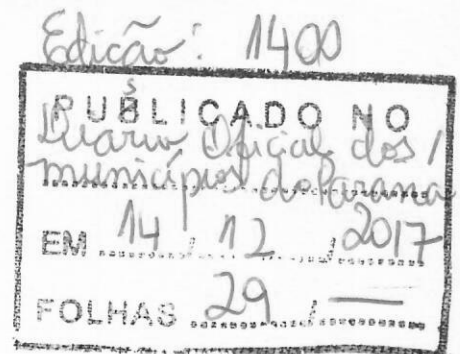 Edição: 1400
PUBLICADO NO
Diário Oficial dos
municípios do Paraná
EM 14 / 12 / 2017
FOLHAS 29 / —